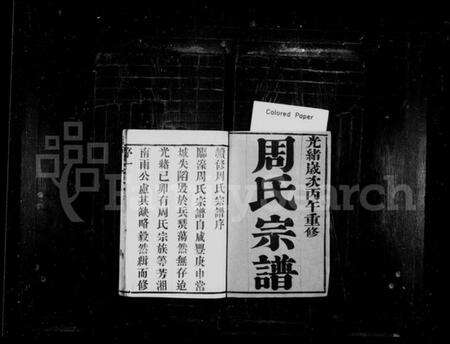 Colored Paper
光緒歲次丙午重修
周氏宗譜
續修周氏宗譜序
臨湠周氏宗譜自咸豐庚申常
城失陷毀於兵燹蕩然無存迨
光緒己卯有周氏宗族等芳湘
南雨公慮其缺略毅然輯而修
FamilySearch